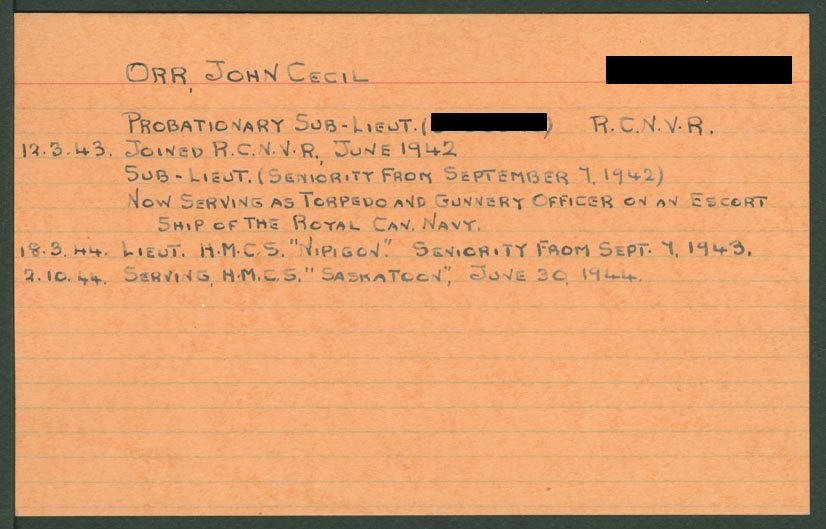 ORR, JOHN CECIL
PROBATIONARY SUB-LIEUT. ( ) R.C.N.V.R.
12.3.43. JOINED R.C.N.V.R., JUNE 1942
SUB-LIEUT. (SENIORITY FROM SEPTEMBER 7, 1942)
NOW SERVING AS TORPEDO AND GUNNERY OFFICER ON AN ESCORT
SHIP OF THE ROYAL CAN. NAVY.
18.3.44. LIEUT. H.M.C.S. "NIPIGON". SENIORITY FROM SEPT. 7, 1943.
2.10.44. SERVING, H.M.C.S. "SASKATOON", JUNE 30, 1944.